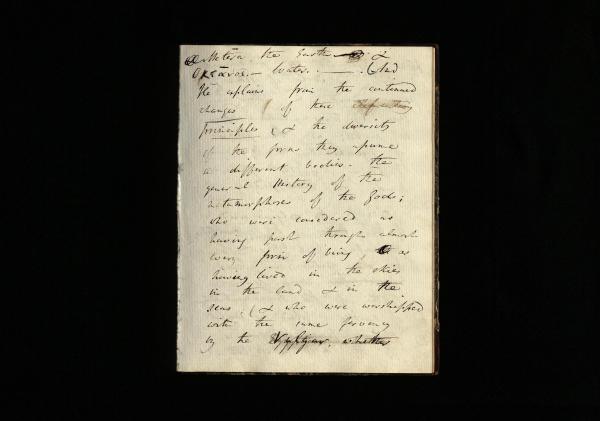 Metēra the Earth &
Okeanos – Water. – (And
He explains from the continued
changes of these
principles, & the diversity
of the forms they assume
in different bodies. the
general History of the
metamorphoses of the Gods;
who were considered as
having past through almost
every form of being, & as
having lived in the skies
in the land & in the
seas. (& who were worshipped
with the same fervency
by the whether